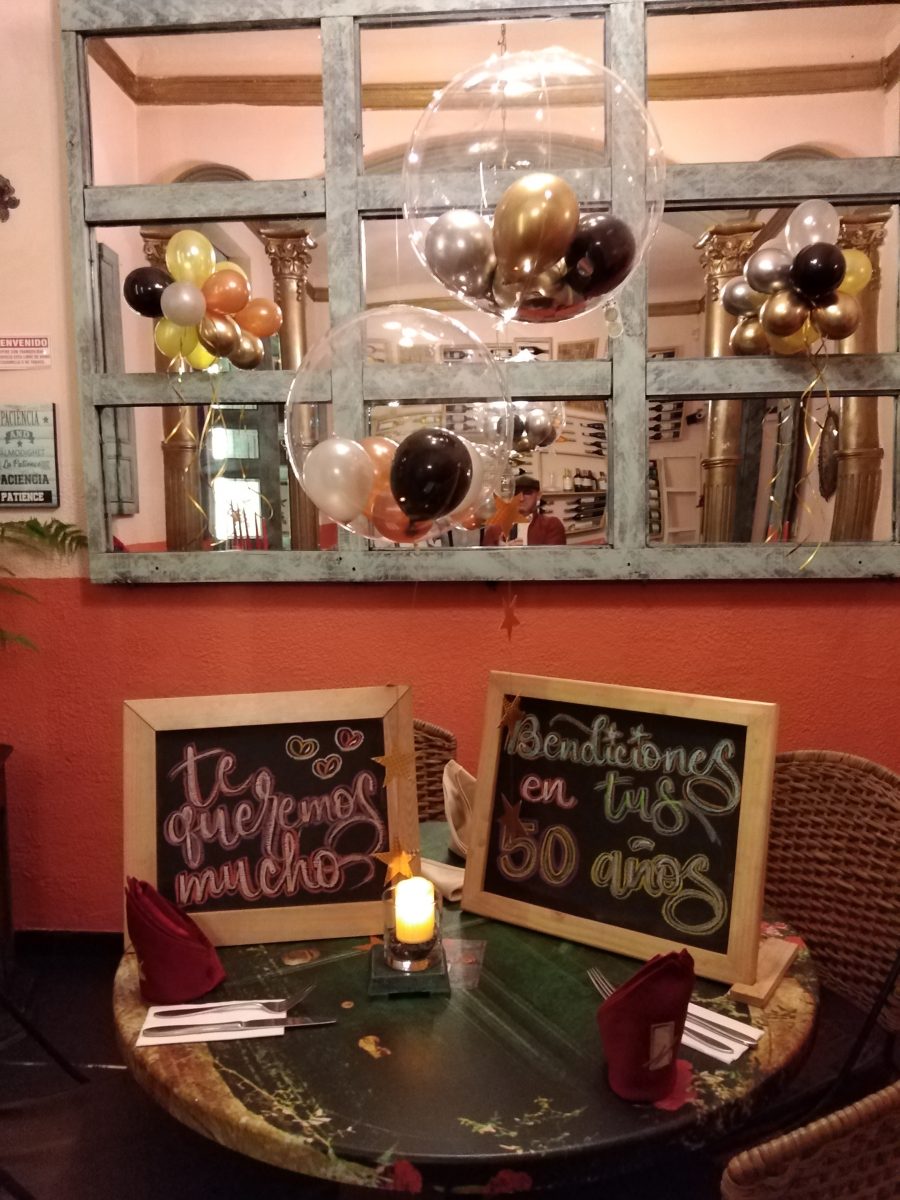 BIENVENIDO
PACIENCIA
AND
La Patience
PACIENCIA
PATIENCE
te
queremos
mucho
Bendiciones
en tus
50 años